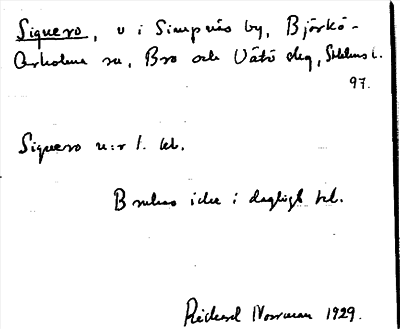 Siguero, u i Simpnäs by, Björkö-
Arholma sn, Bro och Vätö skg, Sthlms l.
97.
Siguero u:r l. kb.
Brukas icke i dagligt tal.
Rickard Norrman 1929.